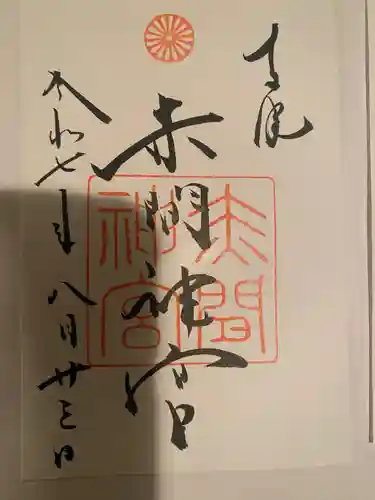 奉拝
赤間神宮
赤間神宮
令和七年八月廿三日